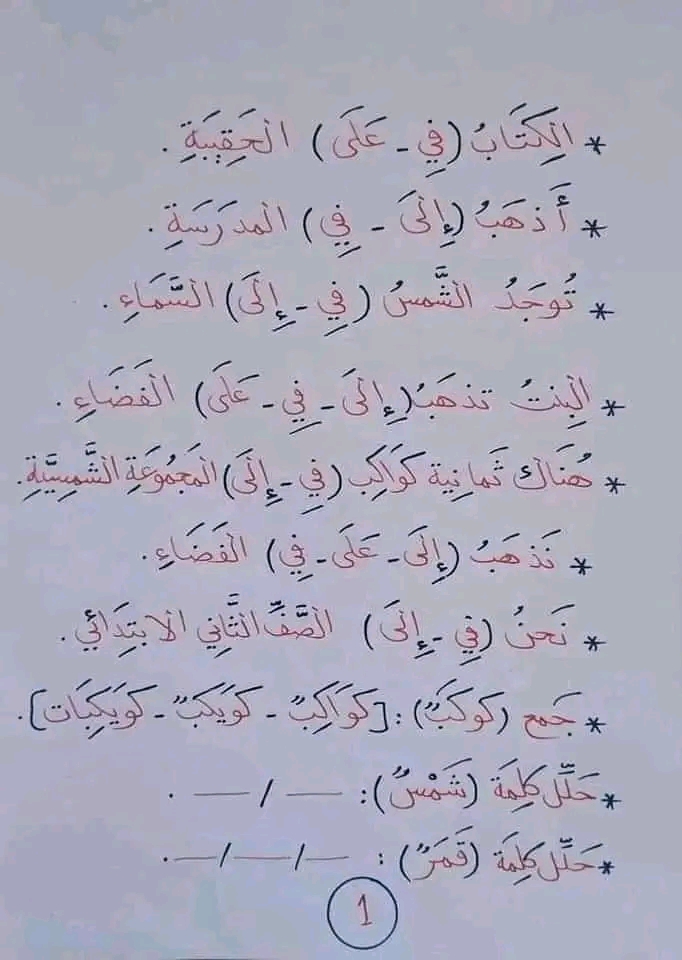 * الْكِتَابُ (فِي - عَلَى) الْحَقِيبَةِ .
* أَذهَبُ (إِلَى - فِي) الْمدَرَسَةِ .
* تُوجَدُ الشَّمسُ (فِي - إِلَى) السَّمَاءِ .
* الْبِنتُ تذهَبُ (إِلَى - فِي - عَلَى) الْفَضَاءِ .
* هُنَاك ثَمانِية كَوَاكِب (فِي - إِلَى) الْمَجمُوعَةِ الشَّمِسِيَّةِ .
* نَذهَبُ (إِلَى - عَلَى - فِي) الْفَضَاءِ .
* نَحنُ (فِي - إِلَى) الصَّفِّ الثَّانِي الابتِدَائي .
* جَمع (كَوكَبٌ) : [كَوَاكِبٌ - كَوَيكَبٌ - كَوَيكِبَات] .
* حَلِّل كَلِمَة (شَمْسٌ) : — / — .
* حَلِّل كَلِمَة (قَمَرٌ) : — / — / — .
1